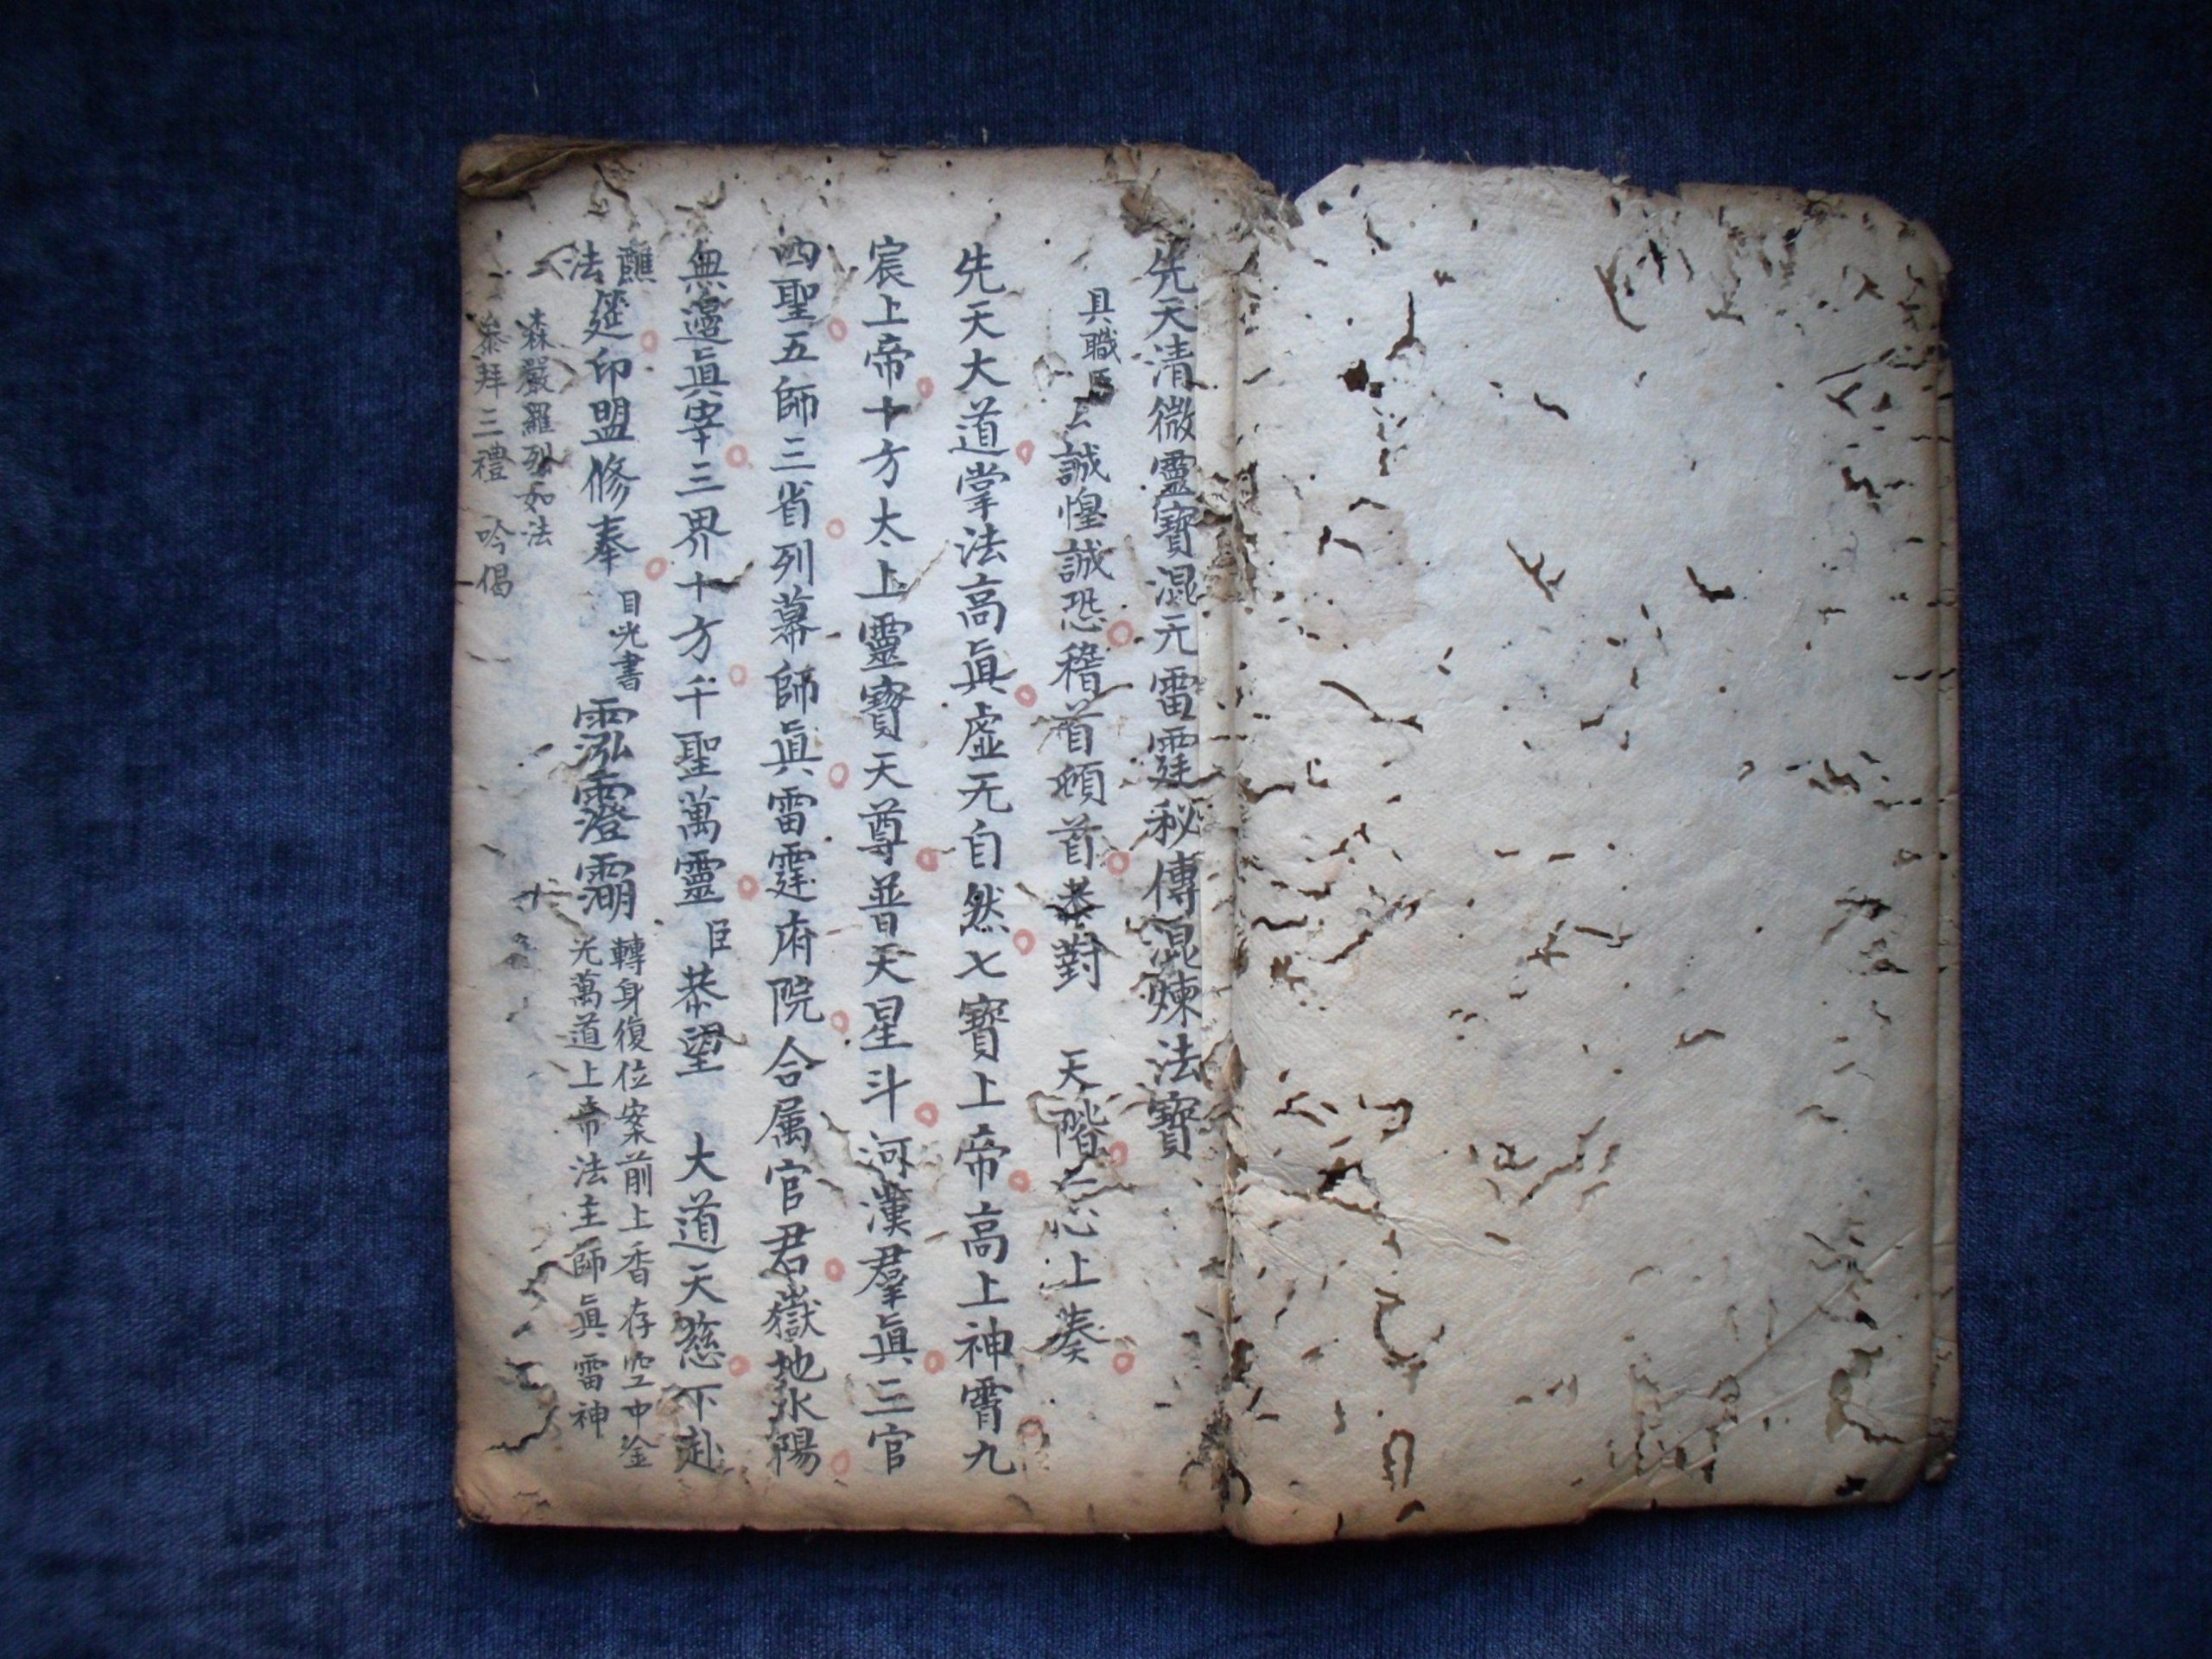 先天清微靈寳混元雷霆秘傳混煉法寳
具職臣厶誠惶誠恐稽首頓首恭對　天階厶心上奏
先天大道掌法高眞虛无自然七寳上帝高上神霄九
宸上帝十方太上靈寳天尊普天星斗河漢羣眞三官
四聖五師三省列幕師眞雷霆府院合属官君嶽地水陽
無邊眞宰三界十方千聖萬靈臣恭望　大道天慈下赴
醮
法
筵印盟修奉
目光書
轉身復位案前上香存空中金
光萬道上帝法主師眞雷神
森嚴羅列如法
叅拜三禮　吟偈